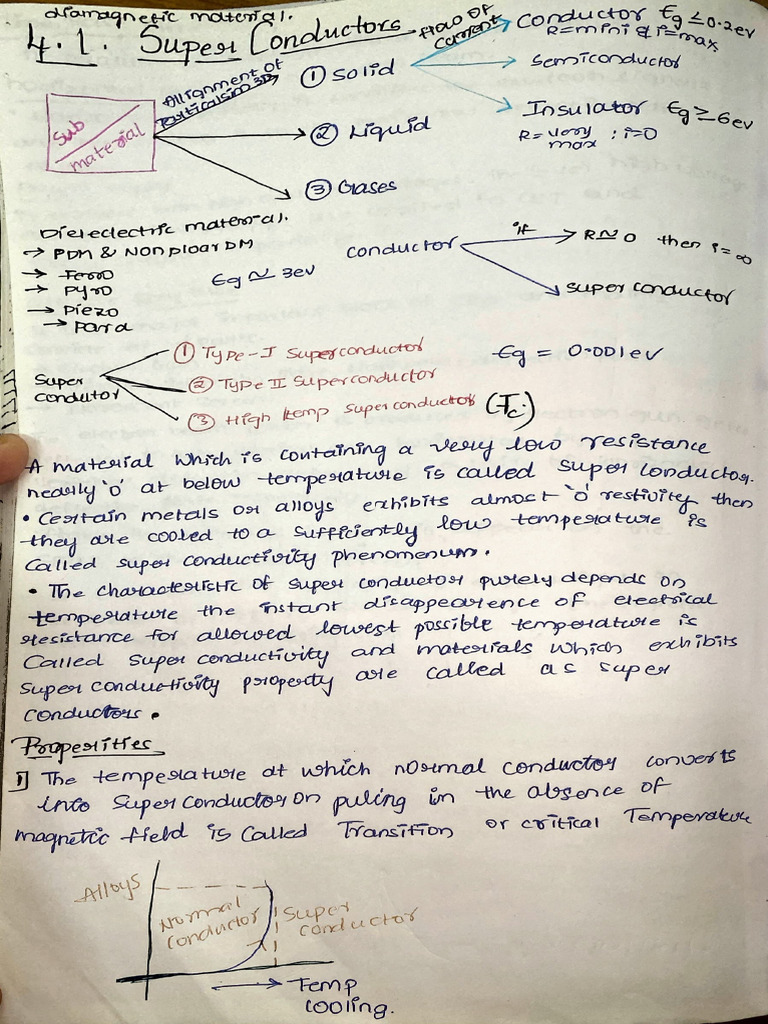 diamagnetic material.
4.1. Super Conductors
flow of current
Conductor Eg ≤ 0.2ev
R=mini & i=max
Semiconductor
Insulator Eg ≥ 6ev
R= very max ; i=0
Sub
material
Allignment of
Particals in 3D
① Solid
② Liquid
③ Gases
Dielelectric material.
→ PDM & Nonploar DM
→ Ferro
→ Pyro
→ Piezo
→ Para
Eg ≃ 3ev
conductor
if
R≃0 then i=∞
super conductor
Super
condutor
① Type-I Superconductor
② Type II Superconductor
③ High temp superconductor (Tc)
Eg = 0.001ev
A material which is containing a very low resistance
nearly '0' at below temperature is called super conductor.
• Certain metals or alloys exhibits almost '0' restivity then
they are cooled to a sufficiently low temperature is
called super conductivity phenomenum.
• The characteristic of super conductor purely depends on
temperature the instant disappearence of electrical
resistance for allowed lowest possible temperature is
Called super conductivity and materials which exhibits
super conductivity property are called as super
conductors.
Properities
1] The temperature at which normal conductor converts
into super conductor on puling in the absence of
magnetic field is called Transition or critical Temperature
Alloys
Normal
Conductor
Super
conductor
→ Temp
cooling.